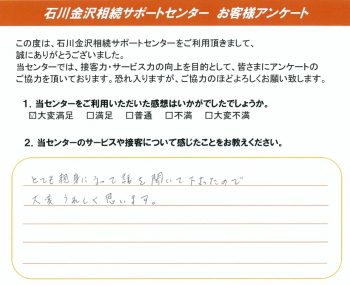 石川金沢相続サポートセンター お客様アンケート
この度は、石川金沢相続サポートセンターをご利用頂きまして、
誠にありがとうございました。
当センターでは、接客力・サービス力の向上を目的として、皆さまにアンケートの
ご協力を頂いております。恐れ入りますが、ご協力のほどよろしくお願い致します。
1. 当センターをご利用いただいた感想はいかがでしたでしょうか。
☑大変満足 □満足 □普通 □不満 □大変不満
2. 当センターのサービスや接客について感じたことをお教えください。
とても親身になって話を聞いて下さったので
大変うれしく思います。